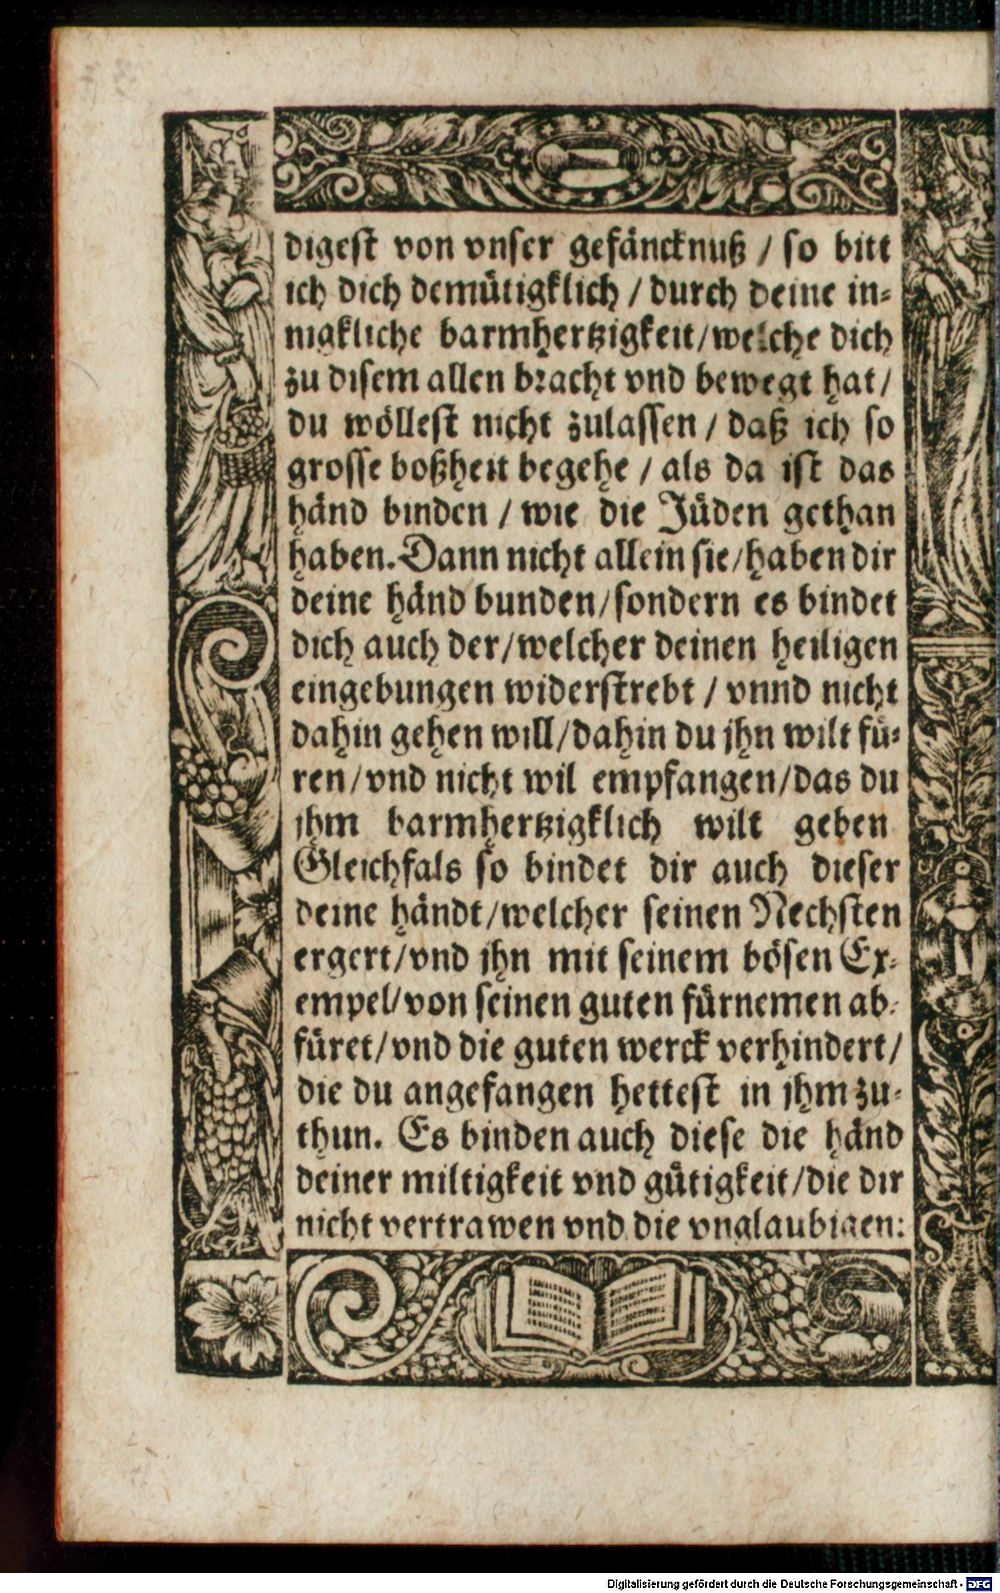 digest von vnser gefäncknuß / so bitt
ich dich demütigklich / durch deine in-
nigkliche barmhertzigkeit/welche dich
zu disem allen bracht vnd bewegt hat/
du wöllest nicht zulassen / daß ich so
grosse boßheit begehe / als da ist das
händ binden / wie die Jüden gethan
haben. Dann nicht allein sie/haben dir
deine händ bunden/sondern es bindet
dich auch der/welcher deinen heiligen
eingebungen widerstrebt / vnnd nicht
dahin gehen will/dahin du jhn wilt fü-
ren/vnd nicht wil empfangen/das du
jhm barmhertzigklich wilt geben
Gleichfals so bindet dir auch dieser
deine händt/welcher seinen Nechsten
ergert/vnd jhn mit seinem bösen Ex-
empel/von seinen guten fürnemen ab-
füret/vnd die guten werck verhindert/
die du angefangen hettest in jhm zu-
thun. Es binden auch diese die händ
deiner miltigkeit vnd gütigkeit/die dir
nicht vertrawen vnd die vnglaubigen:
Digitalisierung gefördert durch die Deutsche Forschungsgemeinschaft - DFG